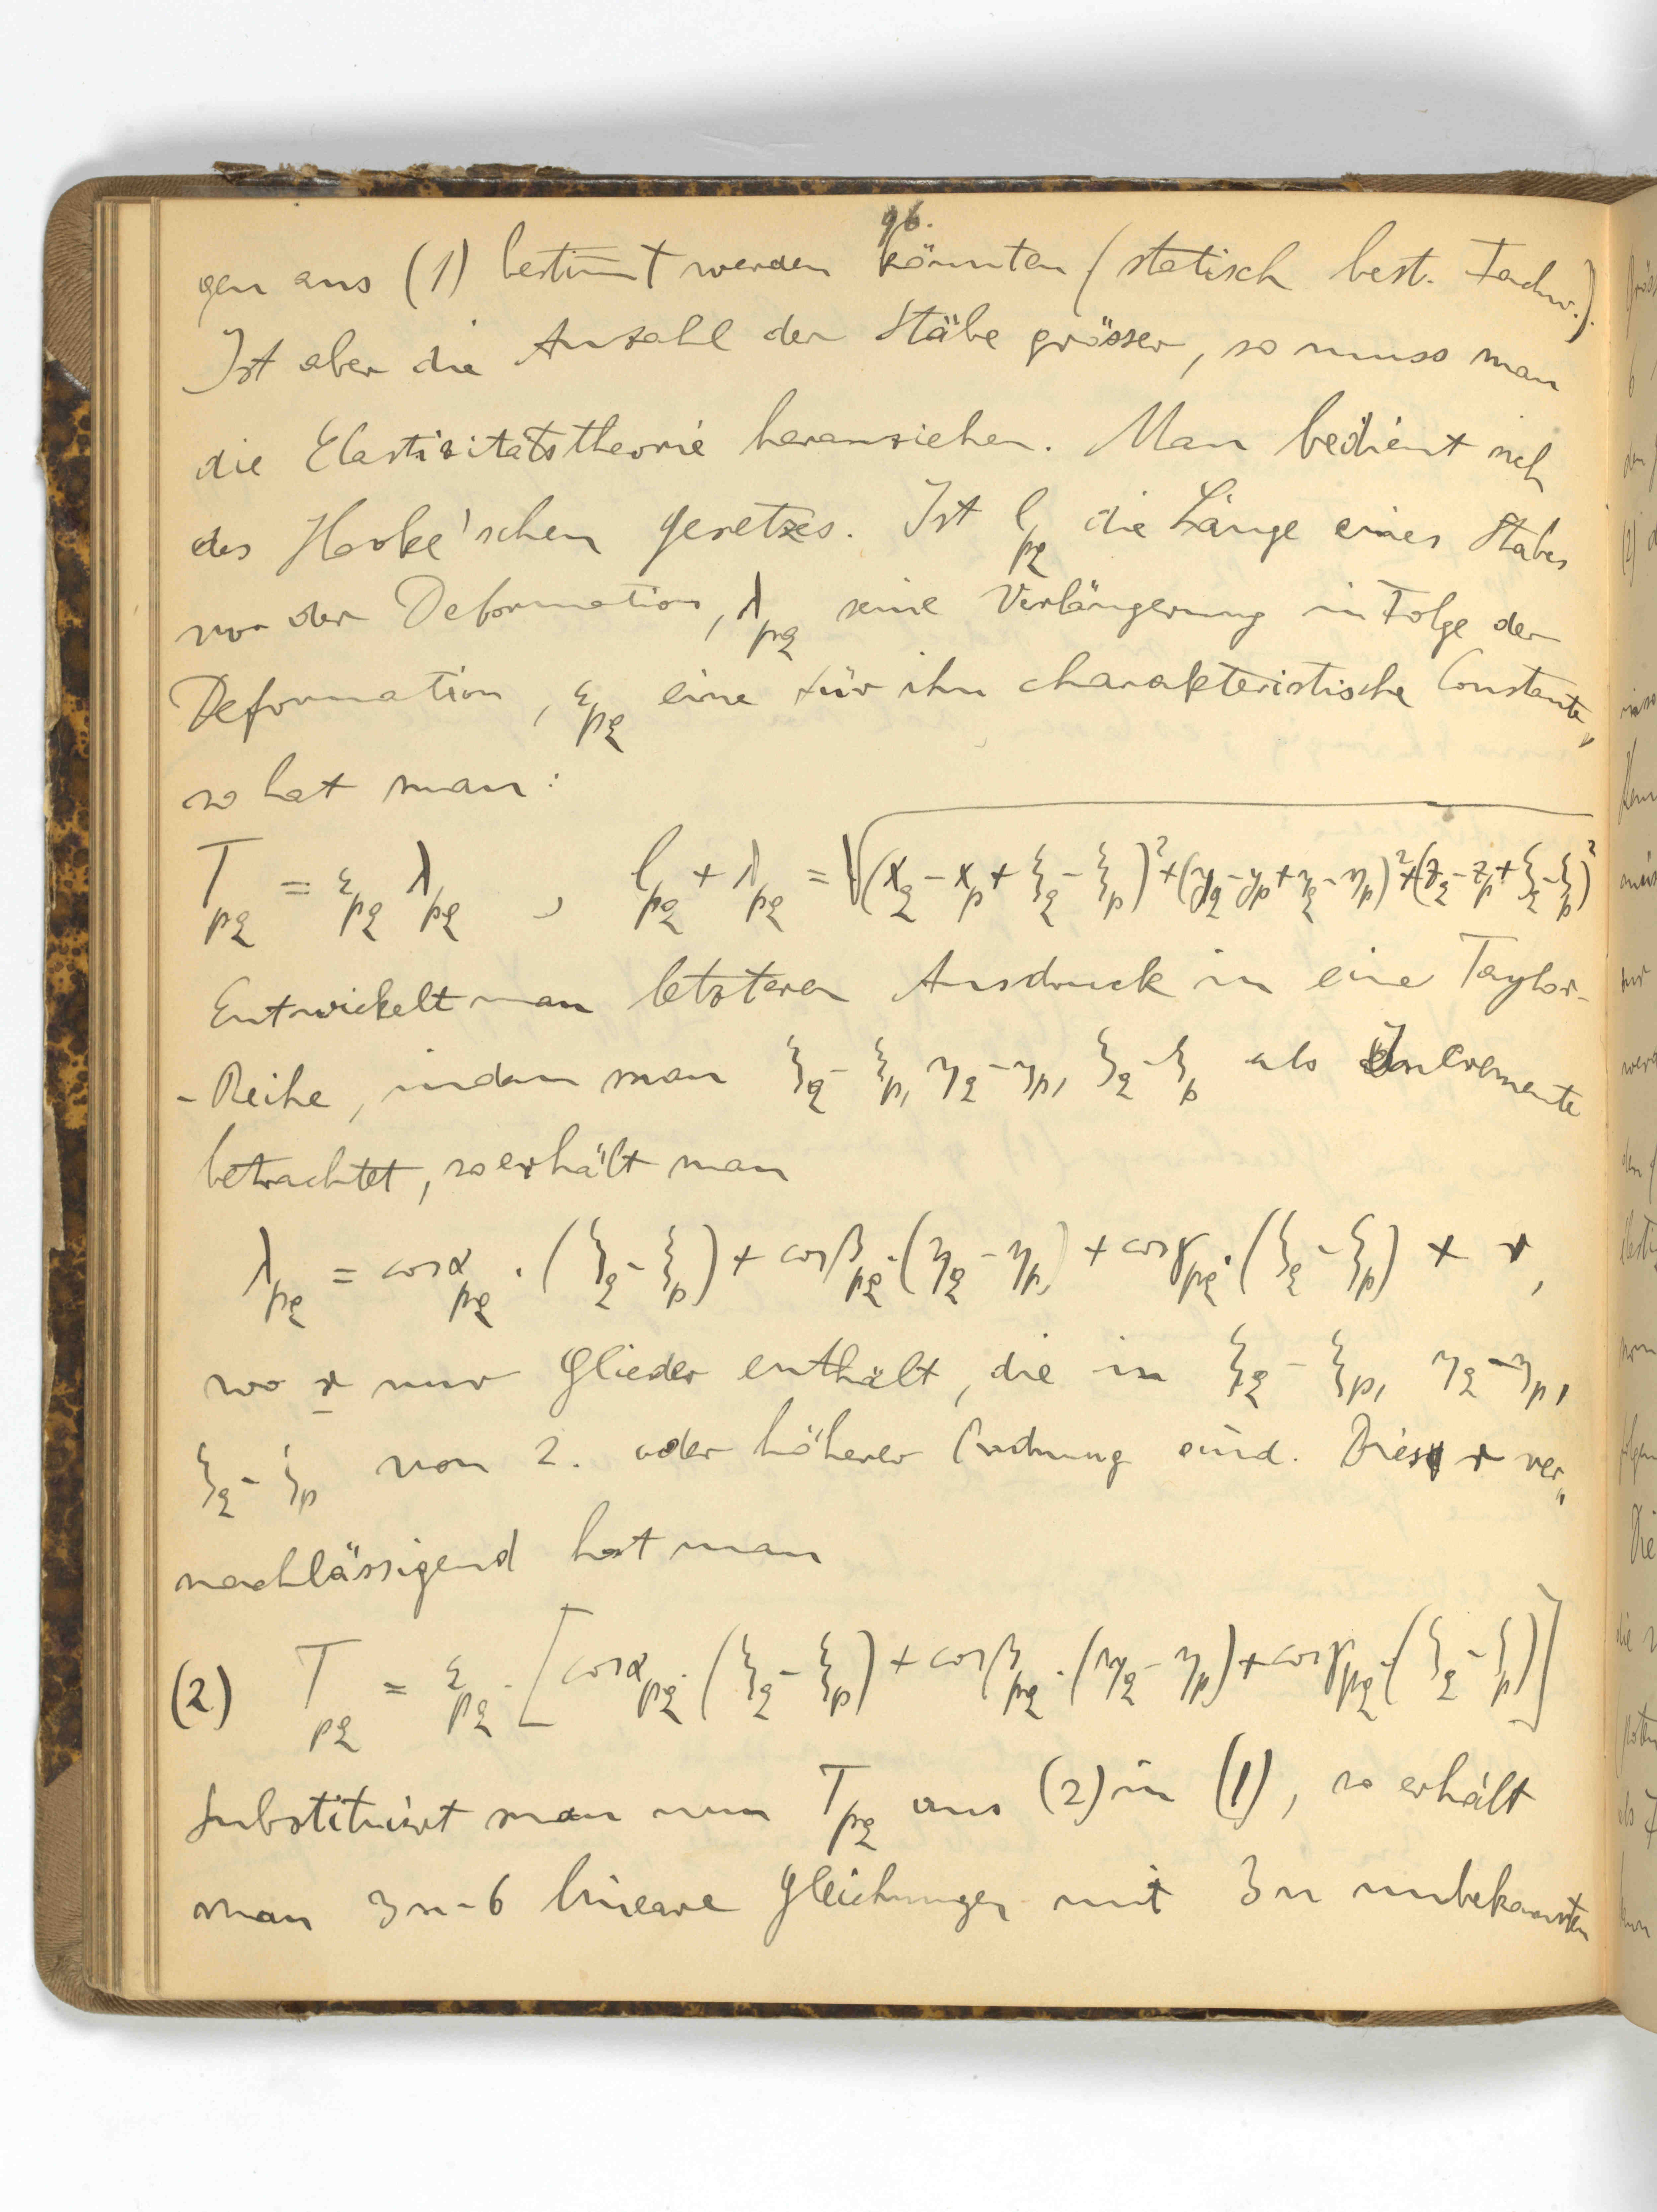 96.
gen aus (1) bestim̅t werden könnten (statisch best. Fachw.).
Ist aber die Anzahl der Stäbe grösser, so muss man
die Elastizitätstheorie heranziehen. Man bedient sich
des Hooke'schen Gesetzes. Ist l_pq die Länge eines Stabes
vor der Deformation, λ_pq seine Verlängerung in Folge der
Deformation, ε_pq eine für ihn charakteristische Constante„
so hat man:
T_pq = ε_pq λ_pq , l_pq + λ_pq = √(x_q - x_p + ξ_q - ξ_p)² + (y_q - y_p + η_q - η_p)² + (z_q - z_p + ζ_q - ζ_p)²
Entwickelt man letzteren Ausdruck in eine Taylor-
-Reihe, indem man ξ_q - ξ_p, η_q - η_p, ζ_q - ζ_p als Incremente
betrachtet, so erhält man
λ_pq = cosα_pq · (ξ_q - ξ_p) + cosβ_pq · (η_q - η_p) + cosγ_pq · (ζ_q - ζ_p) + r,
wo r nur Glieder enthält, die in ξ_q - ξ_p, η_q - η_p,
ζ_q - ζ_p von 2. oder höherer Ordnung sind. Dieses r ver„
nachlässigend hat man
(2) T_pq = ε_pq · [cosα_pq · (ξ_q - ξ_p) + cosβ_pq · (η_q - η_p) + cosγ_pq · (ζ_q - ζ_p)]
Substituirt man nun T_pq aus (2) in (1), so erhält
man 3n-6 lineare Gleichungen mit 3n unbekannten